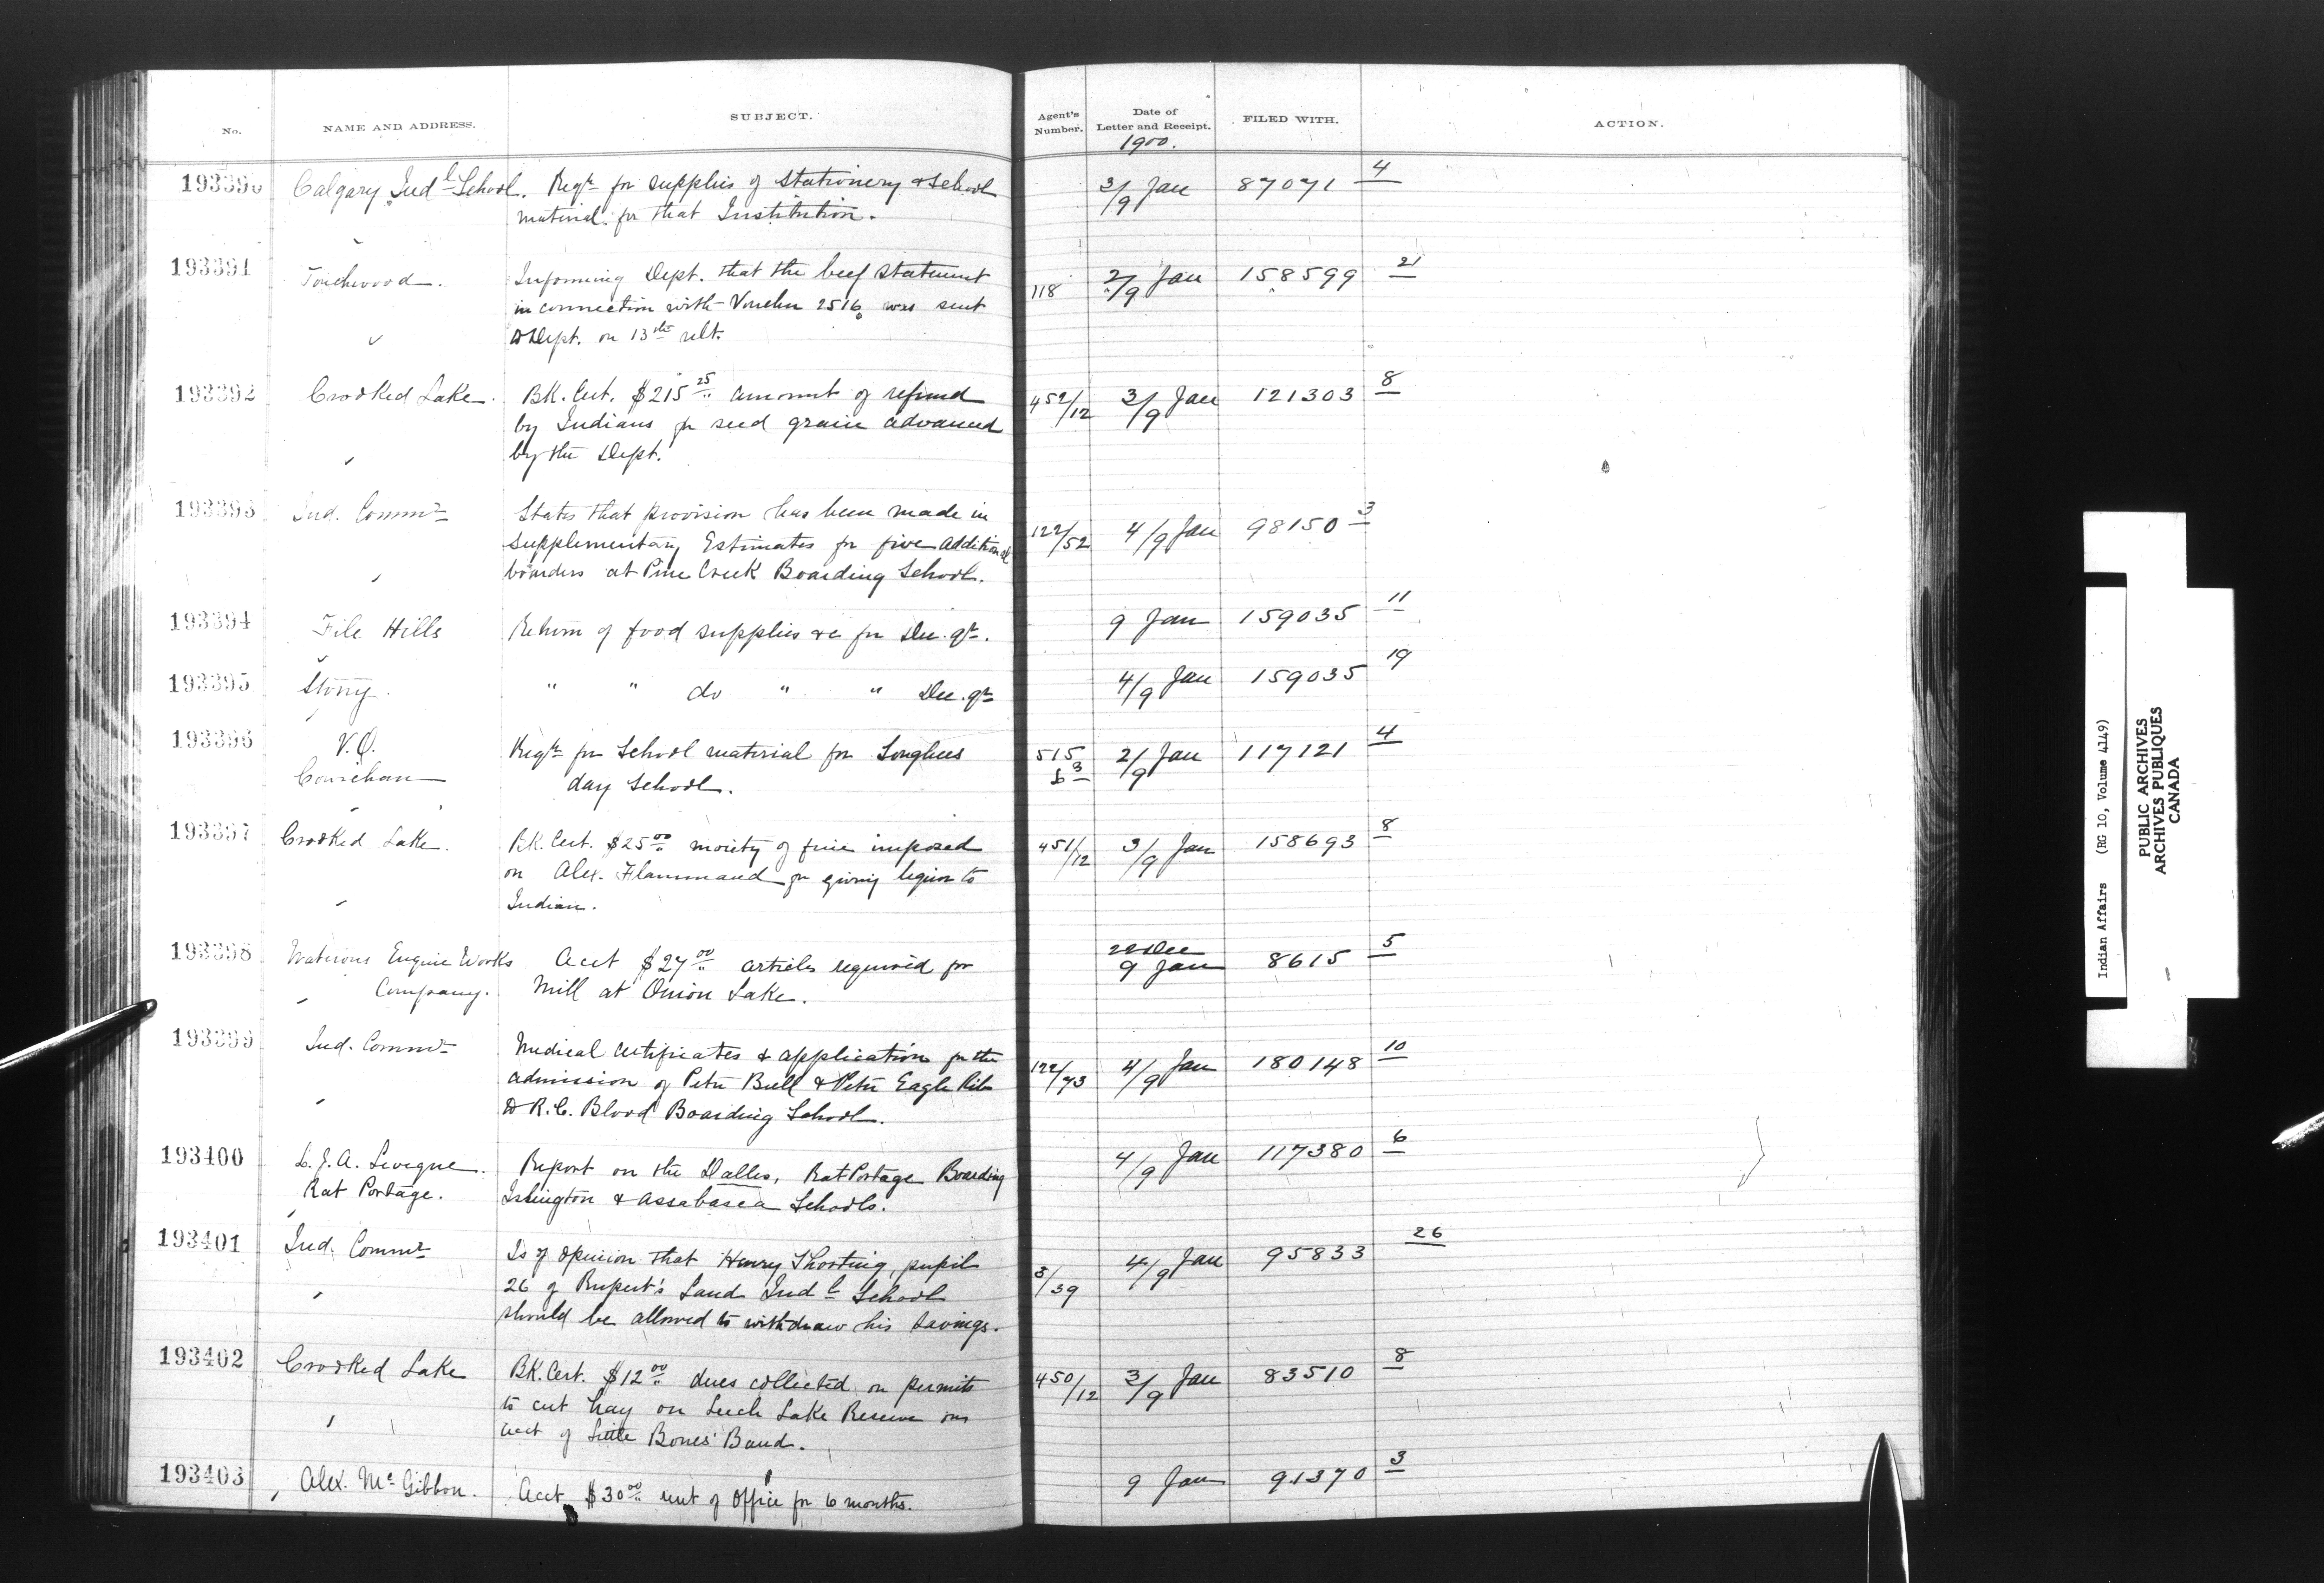 No. NAME AND ADDRESS. SUBJECT. Agent's Number. Date of Letter and Receipt. FILED WITH. ACTION.
1900.
193390 Calgary Indl School. Reqn for supplies of Stationery & School 3/9 Jan 87071 4
material for that Institution.
193391 Touchwood. Informing Dept. that the beef statement 118 2/9 Jan 158599 21
in connection with Voucher 2516 was sent
to Dept. on 13th ult.
193392 Crooked Lake. BK. Cert. $215 25 amount of refund 452/12 3/9 Jan 121303 8
by Indians for seed grain advanced
by the Dept.
193393 Ind. Commr States that provision has been made in 122/52 4/9 Jan 98150 3
Supplementary Estimates for five additional
boarders at Pine Creek Boarding School.
193394 File Hills Return of food supplies &c for Dec. qr. 9 Jan 159035 11
193395 Stony. " " do " " Dec. qr 4/9 Jan 159035 19
193396 V.O. Reqn for School material for Songhees 515 2/9 Jan 117121 4
Cowichan day School.
193397 Crooked Lake. BK. Cert. $25 00 moiety of fine imposed 451/12 3/9 Jan 158693 8
on Alex. Flammand for giving liquor to
Indian.
193398 Waterous Engine Works Acct $27 00 articles required for 22 Dec 9 Jan 8615 5
Company. Mill at Onion Lake.
193399 Ind. Commr Medical Certificates & application for the 122/73 4/9 Jan 180148 10
admission of Peter Bull & Peter Eagle Rib
to R.C. Blood Boarding School.
193400 L.J.A. Leveque. Report on the Dalles, Rat Portage Boarding 4/9 Jan 117380 6
Rat Portage. Islington & Assabasca Schools.
193401 Ind. Commr Is of opinion that Henry Shooting, pupil 3/39 4/9 Jan 95833 26
26 of Rupert's Land Indl School
should be allowed to withdraw his savings.
193402 Crooked Lake BK. Cert. $12 00 dues collected on permits 450/12 3/9 Jan 83510 8
to cut hay on Leech Lake Reserve on
acct of Little Bones' Band.
193403 Alex. McGibbon. Acct $30 00 rent of office for 6 months. 9 Jan 91370 3
Indian Affairs (RG 10, Volume 4149)
PUBLIC ARCHIVES
ARCHIVES PUBLIQUES
CANADA